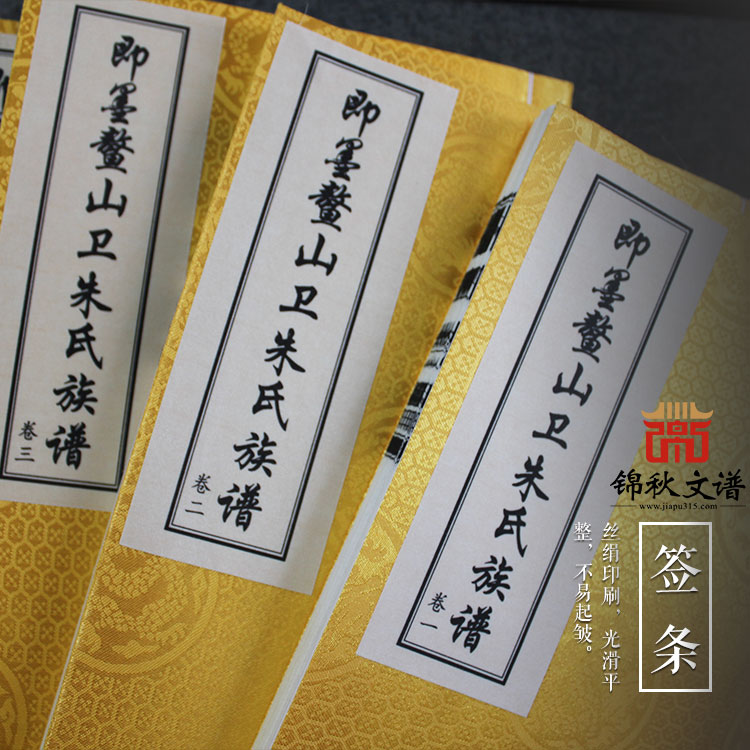 即墨鳌山卫朱氏族谱
卷三
即墨鳌山卫朱氏族谱
卷二
即墨鳌山卫朱氏族谱
卷一
锦秋文谱
www.jiapu315.com
签条
丝绢印刷，光滑平
整，不易起皱。